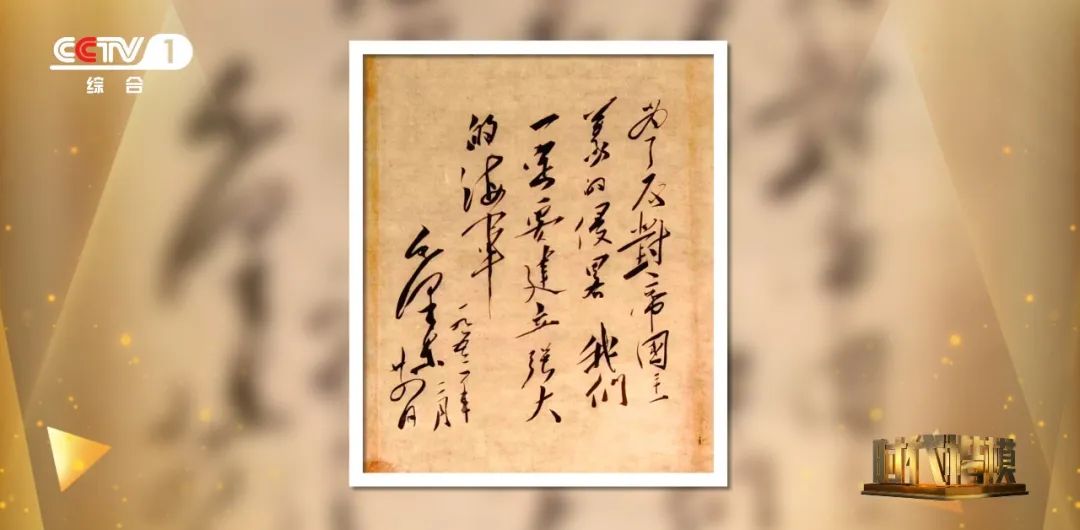 CCTV 1
综合
為了反對帝國主
義的侵畧 我們
一定要建立强大
的海军
毛泽东
一九五三年二月
廿四日
时代楷模